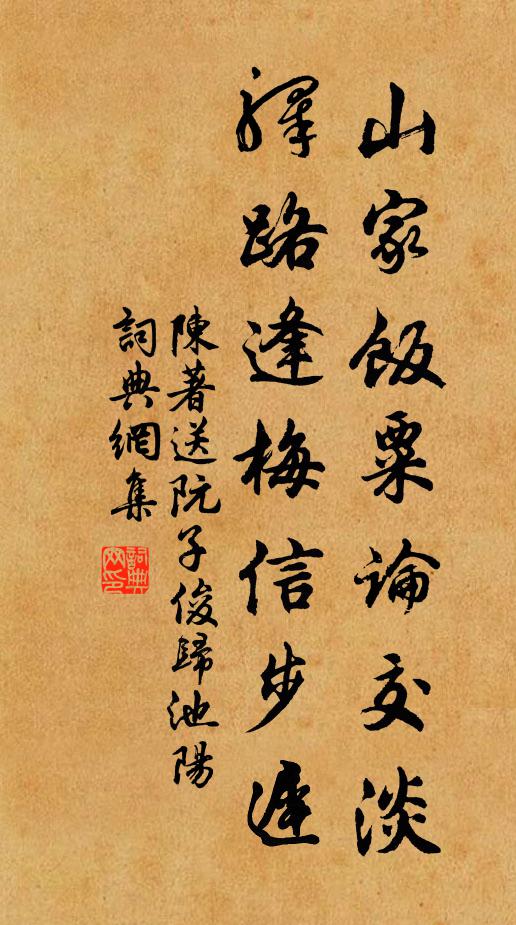 山家飯粟論交淡
驛路逢梅信步遲
陳著送阮子俊歸池陽
詞典網集
詞典网印